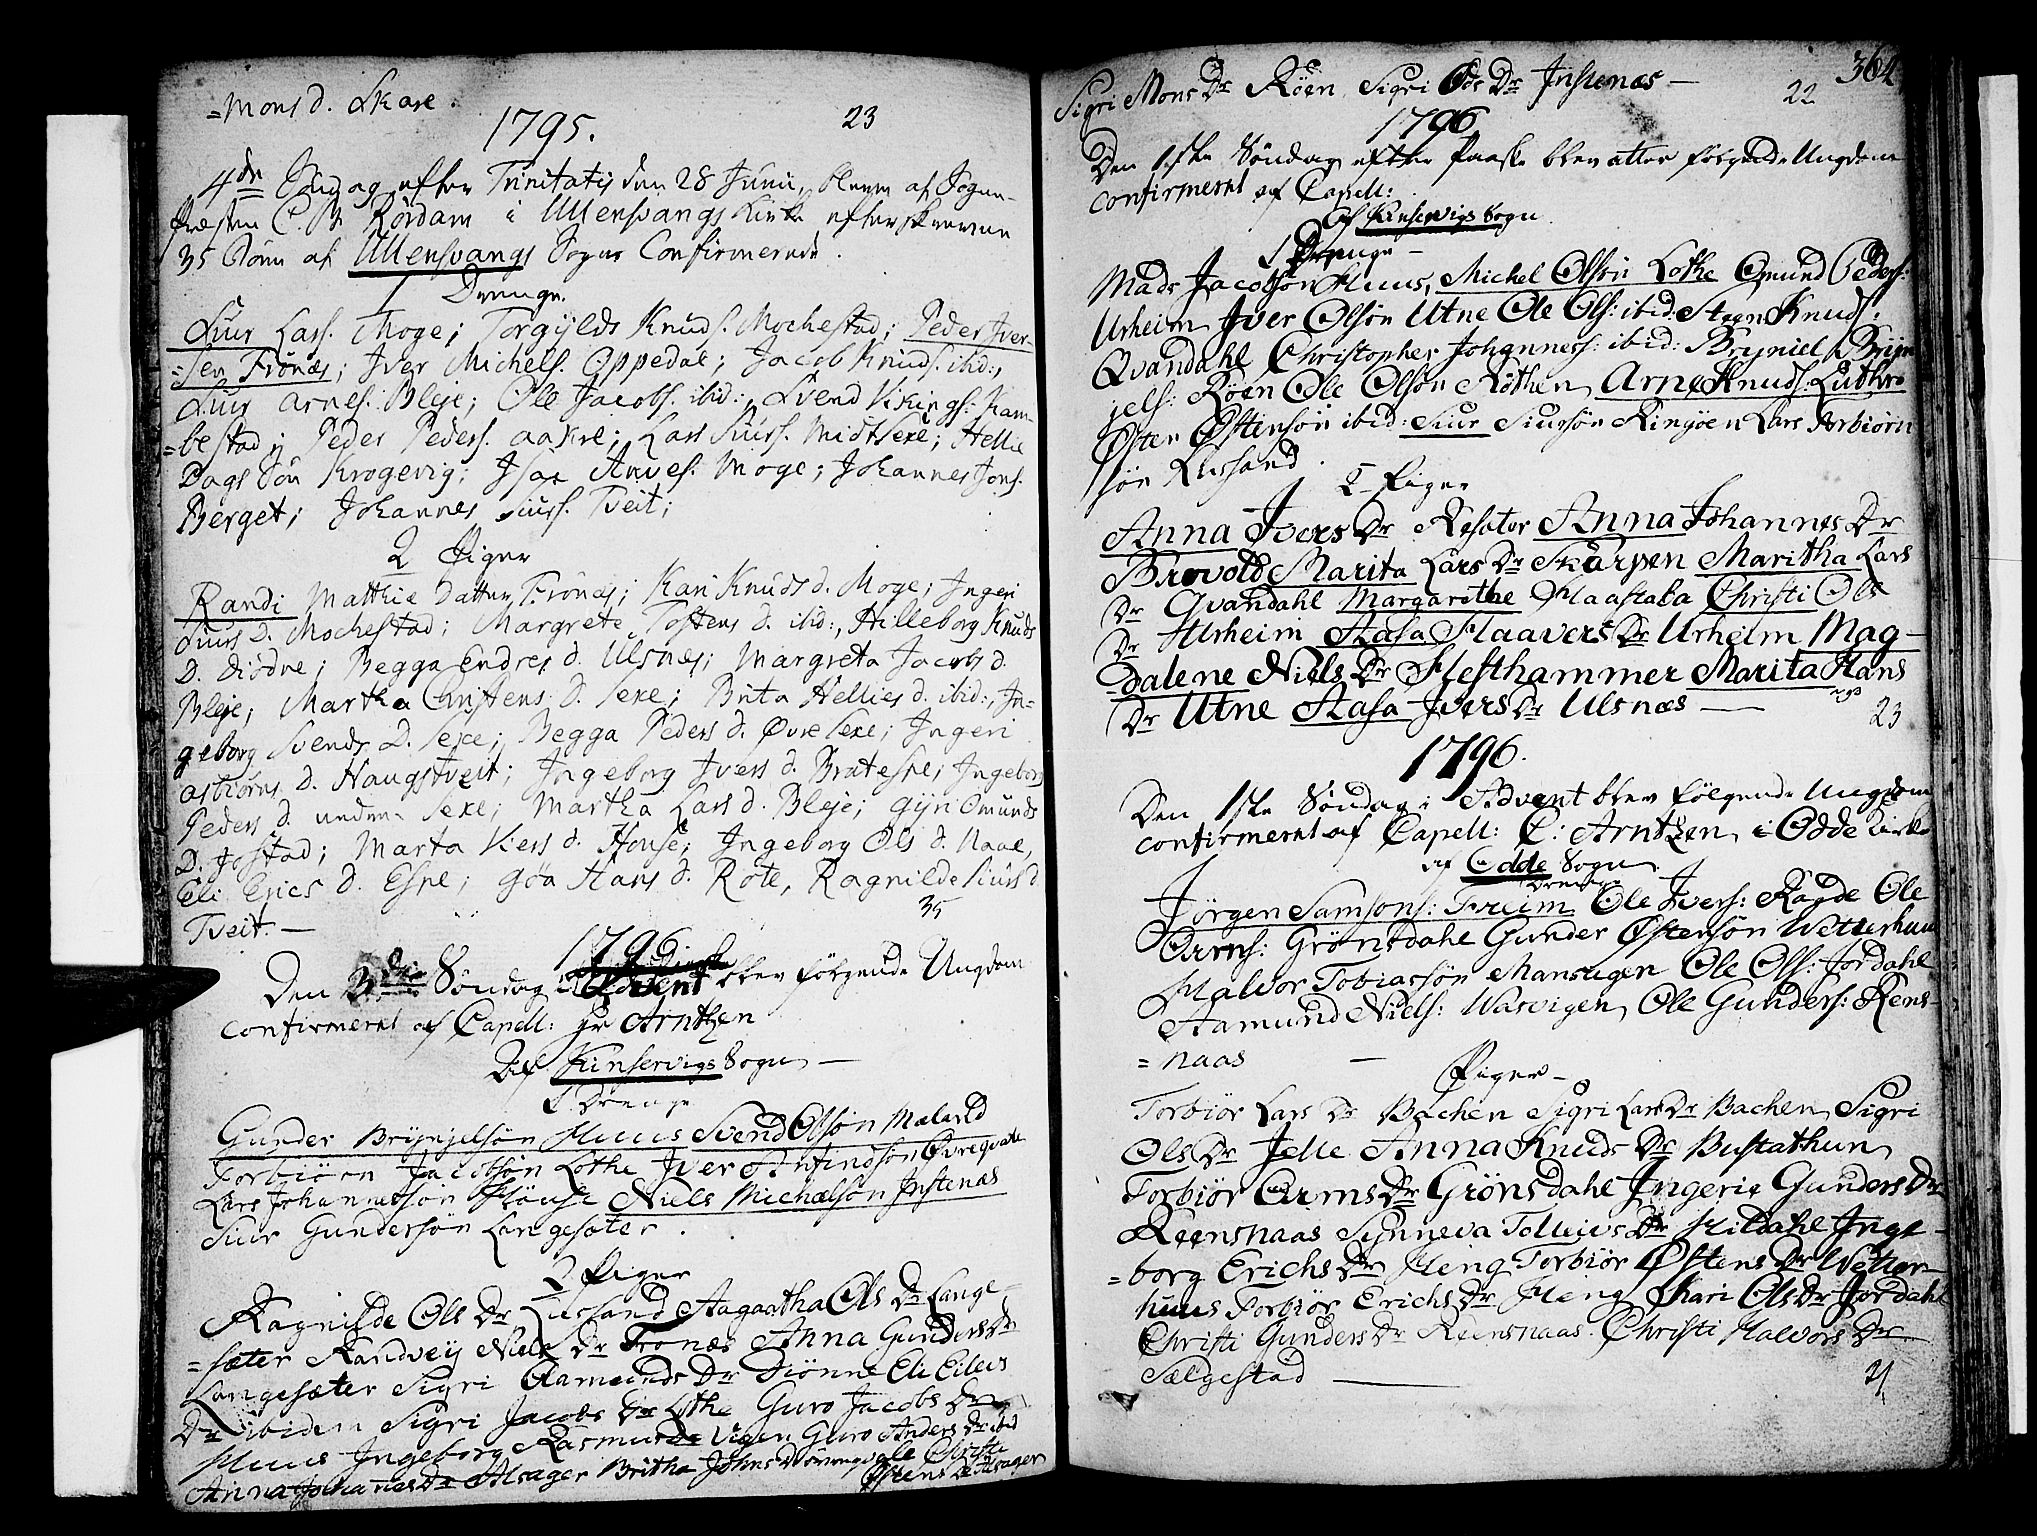 =Mons d. Skare.
1795. 23
4de Søndag efter Trinitatis den 28 Junii, bleve af Sogne-
Præsten C. Rørdam i Ullensvangs Kirke efterskrevne
35 Børn af Ullensvangs Sogn Confirmerede.
1 Drenge.
Siur Lars. Moge; Torgylds Knuds. Mochestad; Peder Iver-
=sen Trones; Iver Michels. Oppedal; Jacob Knuds. ibid:,
Siur Arnes. Bleje; Ole Jacobs. ibid:, Svend Vikings: Kam-
=bestad; Peder Peders. Aakre; Lars Siurs. Midt Sexe; Hellie
Dags Søn Krogevig; Isaa Arnes. Moge; Johannes Jons.
Berget; Johannes Siurs. Tveit;
2 Piger
Randi Mathie Datter Trones; Kari Knuds d. Moge; Ingeri
Siurs D. Mochestad; Margrete Tostens d. ibid:, Hilleborg Knuds
D. Diødne; Begga Endres d. Ulsnes; Margreta Jacobs d.
Bleje; Martha Christens D. Sexe; Brita Hellies d. ibid:, In-
geborg Svends D. Sexe; Begga Peders d. Øvre Sexe; Ingeri
Asbiørns D. Haugstveit; Ingeborg Ivers d. Bratespe; Ingeborg
Peders d. neden Sexe; Martha Lars d. Bleje; Gyri Omunds
D. Jostad; Marta Viers d. House; Ingeborg Ols d. Naae,
Eli Erics d. Espe; Gøa Hans d. Rote, Ragnilde Siurs d
Tveit.— 35
1796
Den 3die Søndag i Advent blev følgende Ungdom
confirmeret af Capell: Hr Arntzen
Af Kinservigs Sogn —
1 Drenge
Gunder Brynjelsøn Huus Svend Olsøn Mæland
Torbiørn Jacobsøn Lothe Iver Anfindsøn Øvreqvale
Lars Johannessøn Hønse Niels Michælsøn Instenæs
Siur Gundersøn Langesæter.
2 Piger
Ragnilde Ols Dr Lussand Aagaatha Ols Dr Lange-
=sæter Randvey Niels Dr Tronæs Anna Gunders Dr
Langesæter Sigri Aamunds Dr Diønne Eli Eilevs
Dr ibidem Sigri Jacobs Dr Lothe Guro Jacobs Dr
Huus Ingeborg Rasmus Dr Vigen Guro Anders Dr ibid
Anna Johannes Dr Alsager Britha Johns Dr Christi
Østens Dr Alsager
Sigri Mons Dr Røen Sigri Ods Dr Instenæs — 364
22
1796
Den 1ste Søndag efter Paaske blev atter følgende Ungdom
confirmeret af Capell:
Af Kinservigs Sogn.
1 Drenge —
Mads Jacobsøn Huus, Michel Olsøn Lothe Omund Peders:
Urheim Iver Olsøn Utne Ole Ols: ibid: Steen Knuds:
Qvandahl Christopher Johanness: ibid: Bryniel Bryn
jels: Røen Ole Olsøn Røthen Arne Knuds. Luthro
Østen Østensøn ibid: Siur Siursøn Ringøen Lars Torbiørn
søn Lussand.
2 Piger
Anna Ivers Dr Resater Anna Johannes Dr
Brovold Marita Lars Dr Skarpen Maritha Lars
Dr Qvandahl Margarethe Haastaba Christi Ols
Dr Urheim Aasa Haavers Dr Urheim Mag-
=dalene Niels Dr Hesthammer Marita Hans
Dr Utne Aasa Ivers Dr Ulsnæs — 23
1796.
Den 1ste Søndag i Advent blev følgende Ungdom
confirmeret af Capell: C: Arntzen i Odde Kirke
af Odde Sogn
Drenge
Jørgen Samsons: Freim Ole Ivers: Ragde Ole
Orms: Grønsdahl Gunder Østensøn Wetterhuus
Halvor Tobiassøn Mansagen Ole Ols: Jordahl
Aamund Niels: Wasvigen Ole Gunders: Rens-
=naas —
Piger —
Torbiør Lars Dr Bachen Sigri Lars Dr Bachen Sigri
Ols Dr Jelle Anna Knuds Dr Bustathun
Torbiør Orms Dr Grønsdahl Ingerie Gunders Dr
Reensnaas Synneva Tollevs Dr Hildahl Inge-
=borg Erichs Dr Heng Torbiør Østens Dr Wetter-
huus Torbiør Erichs Dr Heng Chari Ols Dr Jordahl
Christi Gunders Dr Reensnaas. Christi Halvors Dr
Sælgestad — 21